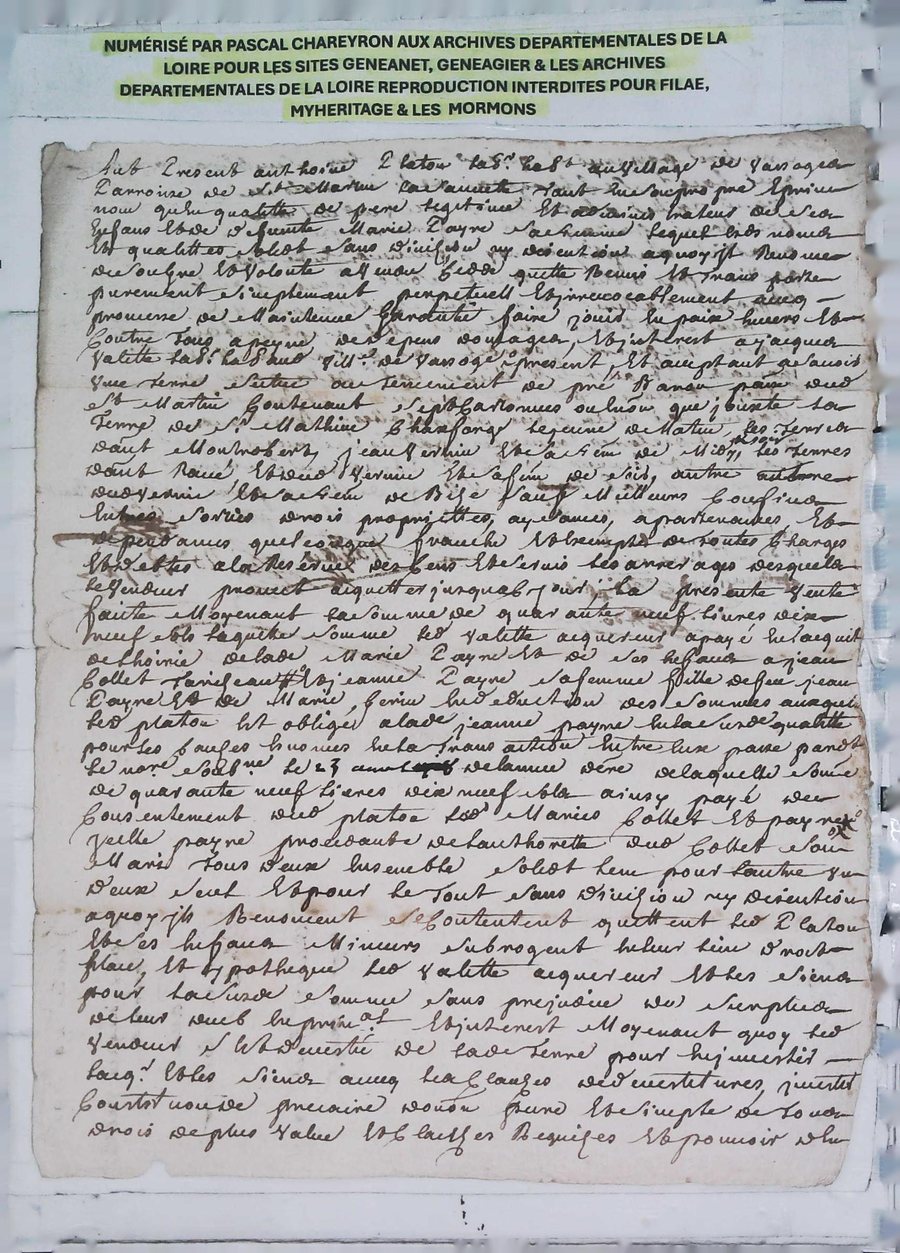 NUMÉRISÉ PAR PASCAL CHAREYRON AUX ARCHIVES DEPARTEMENTALES DE LA
LOIRE POUR LES SITES GENEANET, GENEAGIER & LES ARCHIVES
DEPARTEMENTALES DE LA LOIRE REPRODUCTION INTERDITES POUR FILAE,
MYHERITAGE & LES MORMONS
fut Present anthoine Platon lab.r hab.t au village de
Parroisse de St Martin tant en son propre & prive
nom qu'en quallitte de pere legitime et administrateur de ses
enfans et de deffunte Marie Payre sa femme lequel esds noms
et quallittes solidt sans division ny discution a quoy jl Renonce
de son gre et volonte a vendu cedde quitte Remis et transporte
purement simplement perpetuell et jrrevocablement avec
promesse de Maintenue garentie faire jouir en paix envers et
contre tous a peyne despens domages et jnterest a jacques
Valette lab.r hab.t aud vill.e de present et aceptant
une terre scitue au terrement de pre par.sse dud
St Martin contenant sept cartonnes ou environ que jouxte la
terre de St Mathieu le jeune de Matin, les terres
dudt jean vernin et chemin de Midy, les terres
dudt et dud vernin et chemin de soir, autre
dud vernin et chemin de Bize sauf Meilleurs confins
entrees sorties drois proprietes aysances, apartenances et
dependances quelconque franche et exempte de toutes charges
et debtes a la Reserve des cens et servis les arrerages desquels
le vendeur promet acquitter jusqu'a ce jour, la presente vente
faitte Moyenant la somme de quarante neuf livres dix
neuf sols laquelle somme led valette acquereur a paye en lacquit
de lhoirie de lade Marie Payre et de ses enfans a jean
Collet et jeanne Payre sa femme fille de feu jean
Payre et de Marie en deduction des sommes auxquelles
led platon est oblige a lade jeanne payre en lade quallitte
pour les causes enoncees en la transaction entre eux passe pardt
le not.re soub.ne le 23 de lannee dere de laquelle somme
de quarante neuf livres dix neuf sols ainsy paye du
consentement dud platon leds Maries Collet et payre
jcelle payre procedante de lauthoritte dud Collet son
Mary tous deux ensemble solidt l'un pour l'autre un
deux seul et pour le tout sans division ny discution
a quoy jls Renoncent se contentent quittent led Platon
et ses enfans Mineurs subrogent en leur lieu droit
place, et ypotheque led valette acquereur et les siens
pour lade somme sans prejudice du surplus
de leur dub en prin.al et jnterest Moyenant quoy led
vendeur s'est devestu de lade terre pour en jnvestir
lacq.r et les siens avec les clauses de devestitures, jnvestit
constitution de precaire donnon pure et simple de tous
drois de plus value et clauses Requises et pouvoir